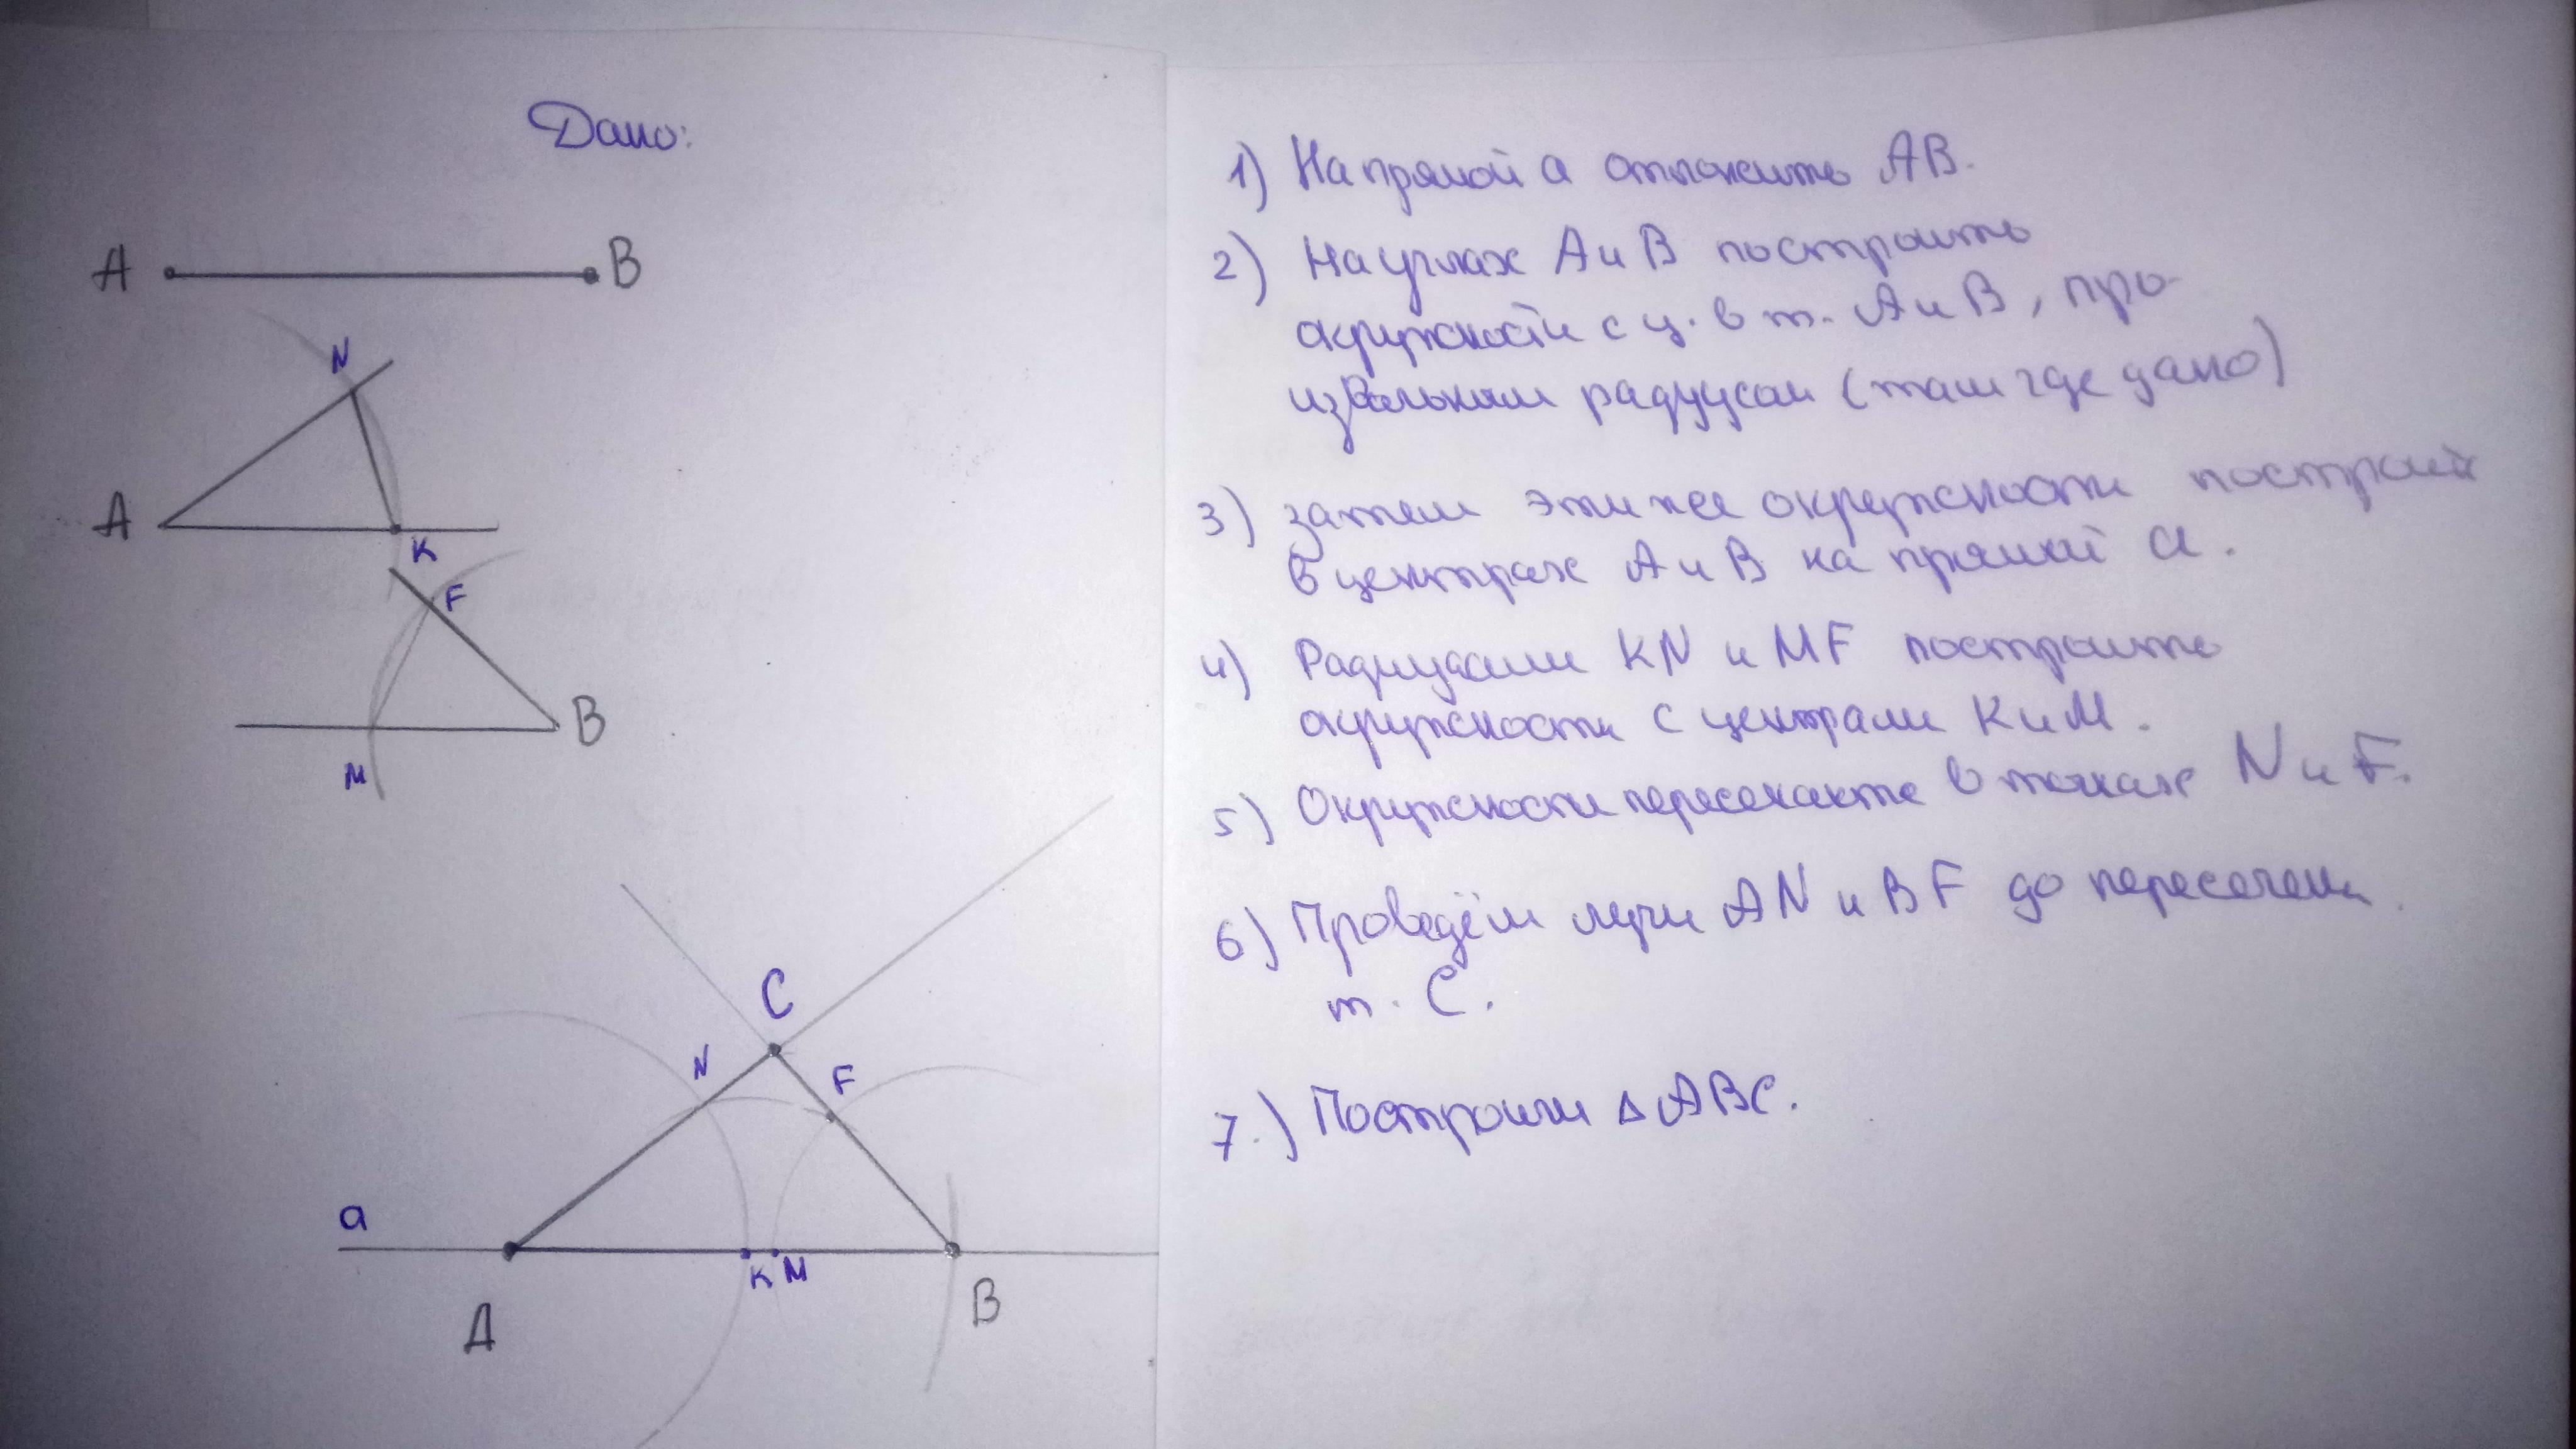 Дано:
A B
N
A
K
F
B
M
C
N F
a
K M
A B
1) На прямой a отложить AB.
2) На углах A и B построить
окружности с ц. в т. A и B, про-
извольным радиусом (там где дано)
3) затем эти же окружности построить
в центрах A и B на прямой a.
4) Радиусами KN и MF построить
окружности с центрами K и M.
5) Окружности пересекаются в точках N и F.
6) Проведём лучи AN и BF до пересечения
т. C.
7.) Построили △ ABC.